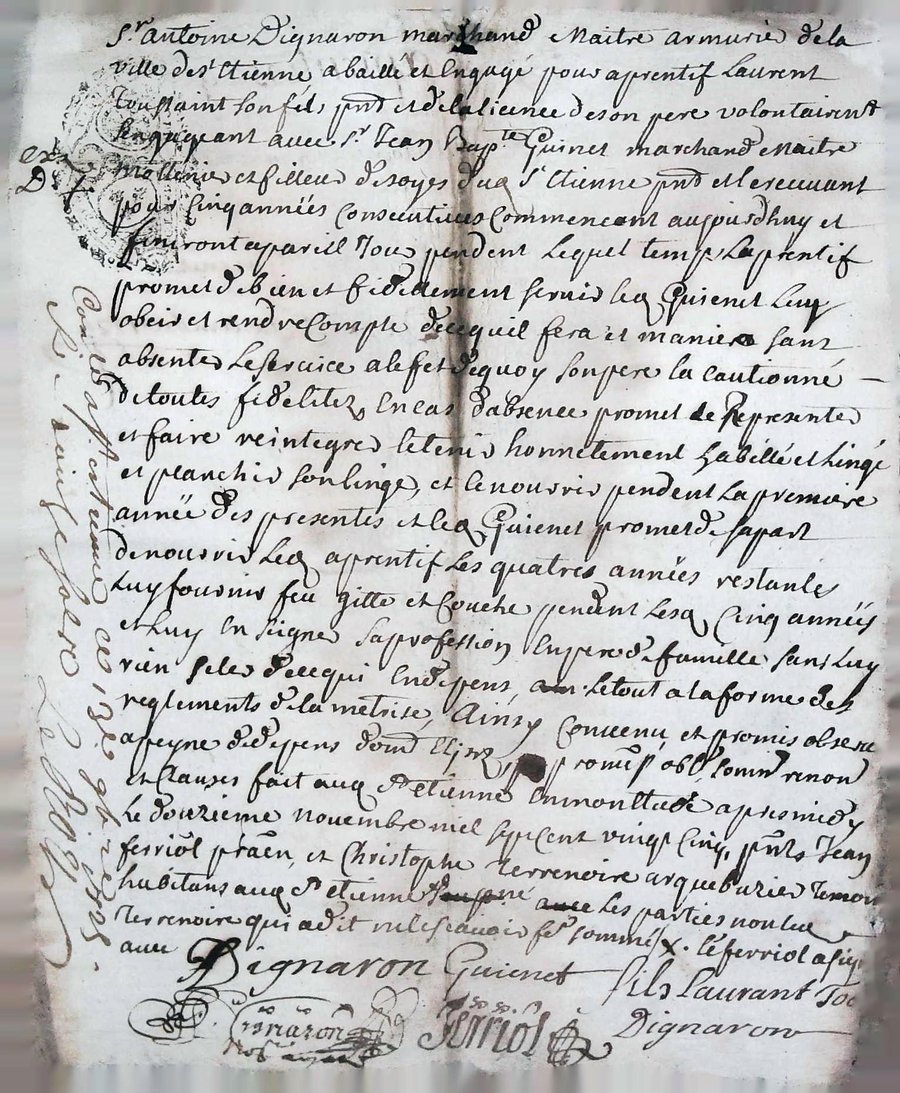 Sr antoine Dignaron marchand Maitre armurié dela
ville de st Etienne abaillé et Engagé pour aprentif Laurent
Toussaint son fils pnt et de la licence de son pere volontairent
Sengageant avec Sr Jean Bapte Guinet marchand Maitre
Mollenier et filleur de soyes dud St Etienne pnt et le recevant
pour Cinq années Consecutives Commencent aujourdhuy et
finiront apareill Jour pendent Lequel temps Laprentif
promet de bien et fidellement servir led Guienet Luy
obeir et rendre Compte de ce quil fera et maniera sans
absenter Leservice alefet dequoy son pere la cautionné
de toutes fidelitez Encas dabsence promet de Representer
et faire reintegrer letenir honnetement habillé et Lingé
et planchir son linge, et lenourrir pendent La premiere
année des presentes et led Guienet promet de sa part
denourrir Led aprentif Les quatres années restantes
Luy fournir feu gitte et Couche pendent Lesd Cinq années
et Luy Enseigner sa profession Enpere de famille sans Luy
rien seler de ce qui Endepens, le tout a la forme des
reglements de la metrise, Ainsy Convenu et promis observer
apeyne de depens dom promis obl renon
et Clauses fait aud St etienne apres midy
Le douzieme novembre miel sept cent vingt Cinq, pnts Jean
ferriol praen, et Christophe Terrenoire arquebuzier Temoin
habitans aud St etienne Les parties non led
Terrenoire qui a dit ne le scavoir sommé x. led ferriol a sig
avec
Dignaron Guienet fils Laurant Tou
Ferriol Dignaron
exp
Con
ce 13e 9bre 1725